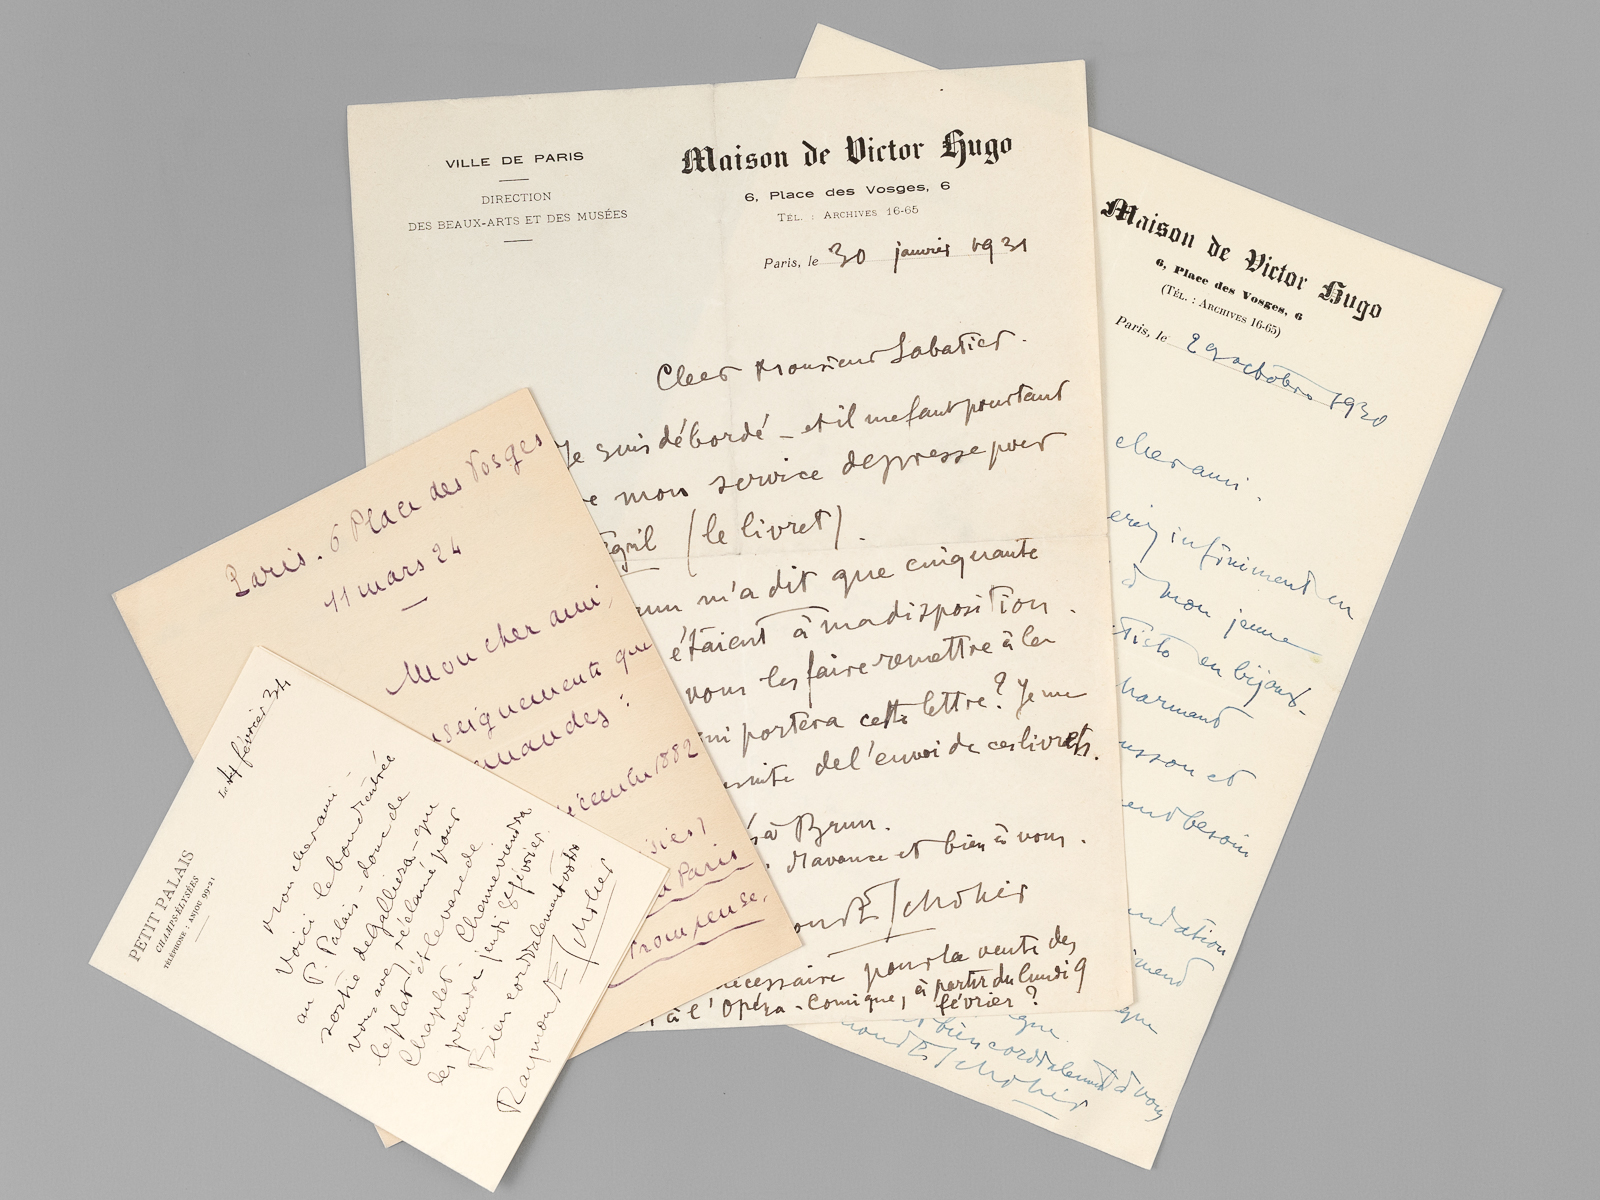 VILLE DE PARIS
DIRECTION
DES BEAUX-ARTS ET DES MUSÉES
Maison de Victor Hugo
6, Place des Vosges, 6
TÉL. : ARCHIVES 16-65
Paris, le 30 janvier 1931
Cher Monsieur Sabatier.
Je suis débordé - et il me faut pourtant
mon service de presse pour
(le livret).
m'a dit que cinquante
étaient à ma disposition.
vous les faire remettre à la
qui portera cette lettre? Je me
de l'envoi de ces livrets.
à Brun.
d'avance et bien à vous.
Escholier
nécessaire pour la vente des
à l'Opéra-Comique, à partir du lundi 9
février ?
Maison de Victor Hugo
6, Place des Vosges, 6
(TÉL. : ARCHIVES 16-65)
Paris, le 29 octobre 1930
cher ami.
infiniment en
à mon jeune
en bijoux.
charmant
et
besoin
que
bien cordialement à vous
Escholier
Paris. 6 Place des Vosges
11 mars 24
Mon cher ami,
renseignements que
demandes :
décembre 1882
à Paris
Trompeuse.
PETIT PALAIS
CHAMPS-ÉLYSÉES
TÉLÉPHONE : ANJOU 99-21
Le 14 février 34
Mon cher ami
Voici le bon d'entrée
au P. Palais - donc de
sortie de Galliera - que
vous avez réclamé pour
le plat et le vase de
Chaplet - Chome viendra
les prendre jeudi
Bien cordialement vôtre
Raymond Escholier